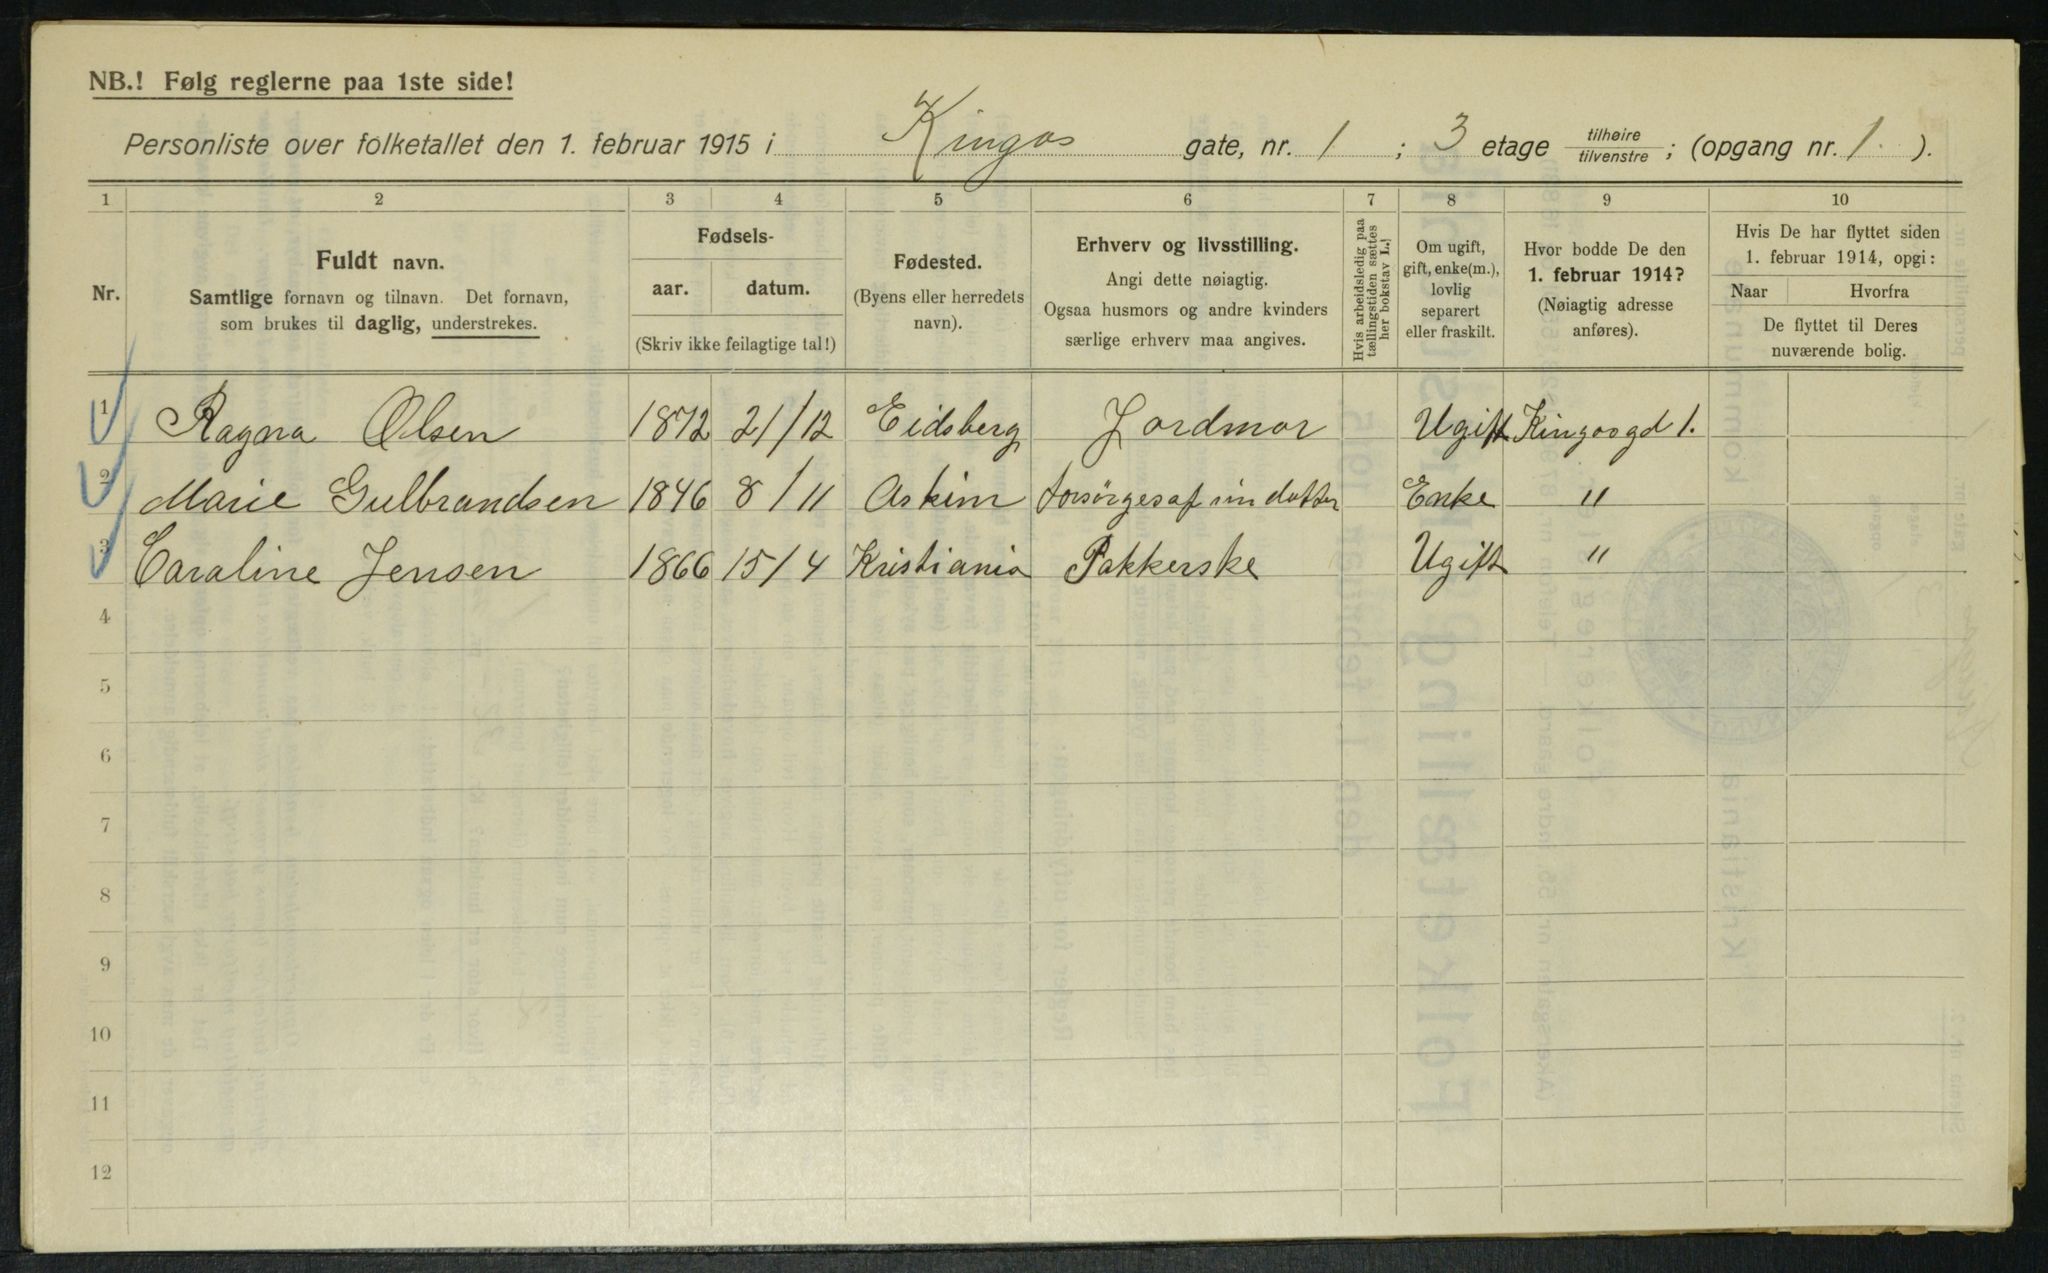 NB.! Følg reglerne paa 1ste side!
Personliste over folketallet den 1. februar 1915 i Kingos gate, nr. 1 ; 3 etage tilhøire / tilvenstre ; (opgang nr. 1. ).
1 2 3 4 5 6 7 8 9 10
Nr.
Fuldt navn.
Samtlige fornavn og tilnavn. Det fornavn,
som brukes til daglig, understrekes.
Fødsels-
aar. datum.
(Skriv ikke feilagtige tal!)
Fødested.
(Byens eller herredets
navn).
Erhverv og livsstilling.
Angi dette nøiagtig.
Ogsaa husmors og andre kvinders
særlige erhverv maa angives.
Hvis arbeidsledig paa
tællingstiden sættes
her bokstav L.)
Om ugift,
gift, enke(m.),
lovlig
separert
eller fraskilt.
Hvor bodde De den
1. februar 1914?
(Nøiagtig adresse
anføres).
Hvis De har flyttet siden
1. februar 1914, opgi:
Naar Hvorfra
De flyttet til Deres
nuværende bolig.
1 Ragna Olsen 1872 21/12 Eidsberg Jordmor Ugift Kingosgd 1.
2 Marie Gulbrandsen 1846 8/11 Askim forsørges af sin datter Enke "
3 Caroline Jensen 1866 15/4 Kristiania Pakkerske Ugift "
4
5
6
7
8
9
10
11
12